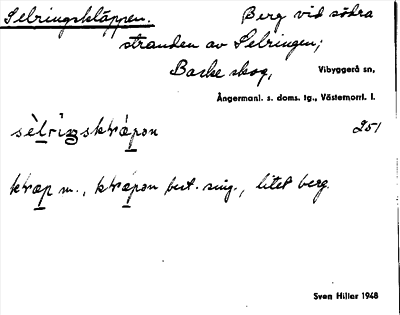 Selringskläppen. Berg vid södra
stranden av Selringen;
Backe skog, Vibyggerå sn,
Ångermanl. s. doms. tg., Västernorrl. l.
251
m., best. sing., litet berg.
Sven Hillar 1948